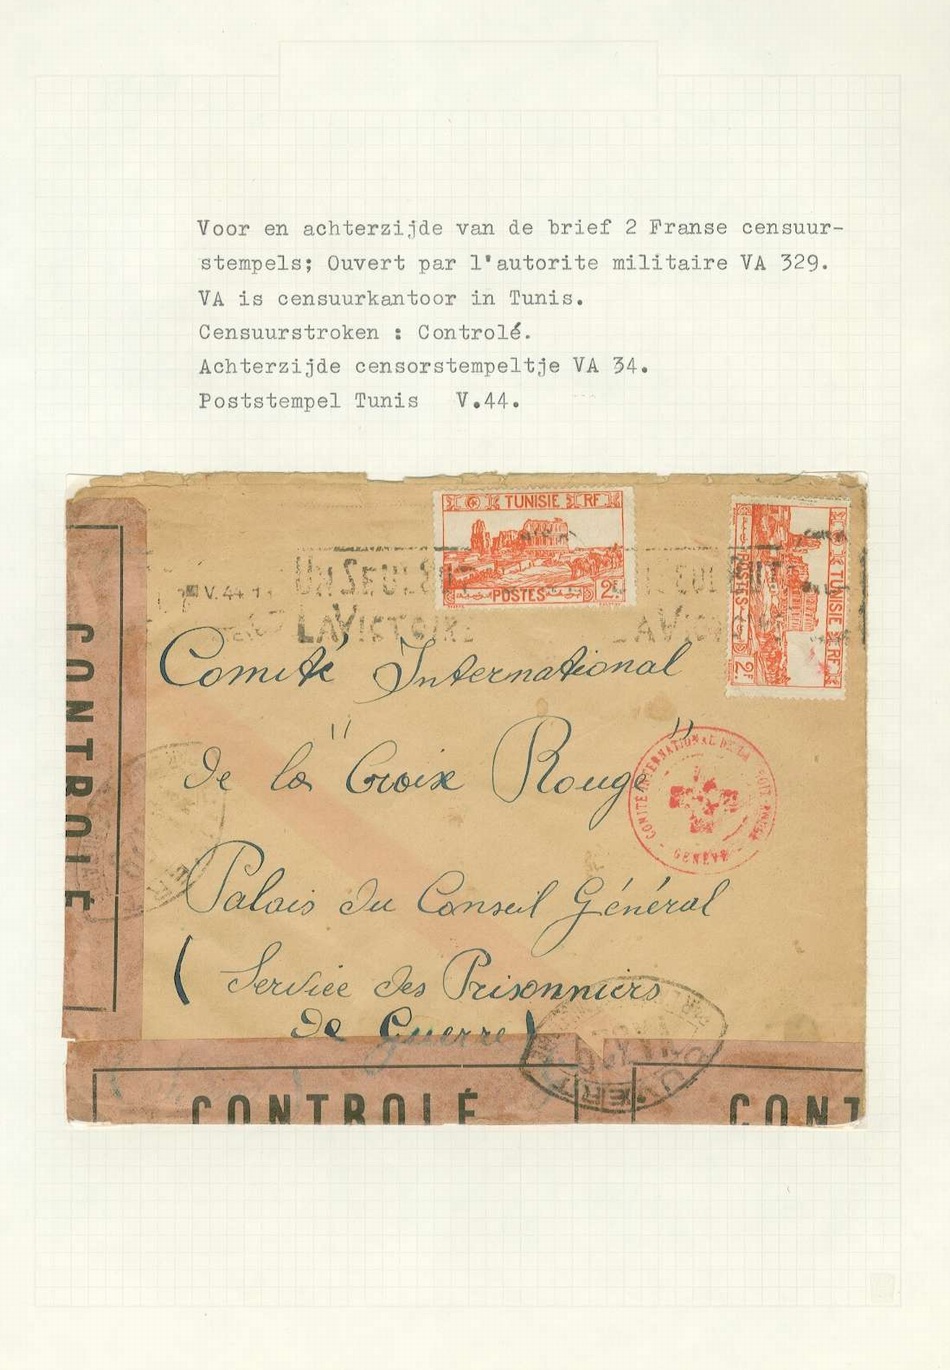 Voor en achterzijde van de brief 2 Franse censuur-
stempels; Ouvert par l'autorite militaire VA 329.
VA is censuurkantoor in Tunis.
Censuurstroken : Controlé.
Achterzijde censorstempeltje VA 34.
Poststempel Tunis V.44.
TUNISIE RF
POSTES 2F
TUNISIE RF
POSTES 2F
V. 44
UN SEUL BUT
LA VICTOIRE
LA VICT
Comité International
de la "Croix Rouge"
COMITÉ INTERNATIONAL DE LA CROIX ROUGE
GENÈVE
Palais du Conseil Général
(Service des Prisonniers
de Guerre)
OUVERT
CONTROLÉ
CONTROLÉ
CONT